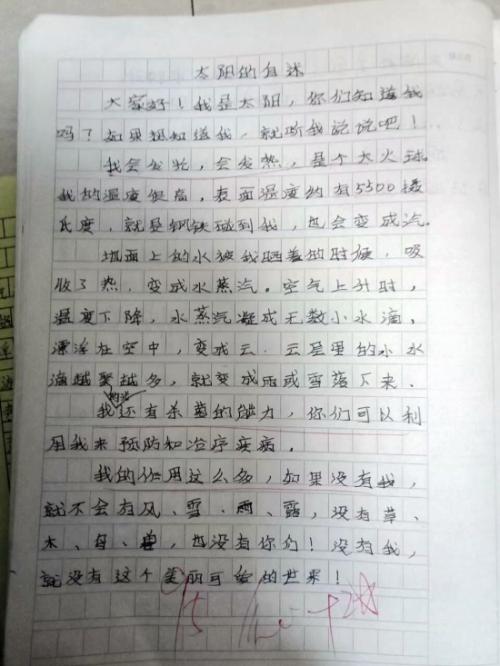 太阳的自述
大家好！我是太阳，你们知道我
吗？如果想知道我，就听我说说吧！
我会发光，会发热，是个大火球
我的温度很高，表面温度约有5500摄
氏度，就是钢铁碰到我，也会变成汽。
地面上的水被我晒着的时候，吸
收了热，变成水蒸汽。空气上升时，
温度下降，水蒸汽凝成无数小水滴，
漂浮在空中，变成云。云层里的小水
滴越聚越多，就变成雨或雪落下来。
我还有杀菌的能力，你们可以利
用我来预防和治疗疾病。
我的作用这么多，如果没有我，
就不会有风、雪、雨、露，没有草、
木、鸟、兽，也没有你们！没有我，
就没有这个美丽可爱的世界！
95